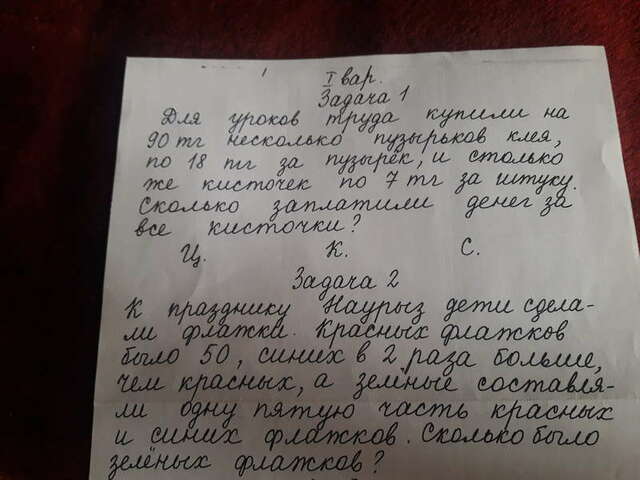 I вар.
Задача 1
Для уроков труда купили на
90 тг несколько пузырьков клея,
по 18 тг за пузырёк, и столько
же кисточек по 7 тг за штуку.
Сколько заплатили денег за
все кисточки?
Ц. К. С.
Задача 2
К празднику Наурыз дети сдела-
ли флажки. Красных флажков
было 50, синих в 2 раза больше,
чем красных, а зелёные составля-
ли одну пятую часть красных
и синих флажков. Сколько было
зелёных флажков?